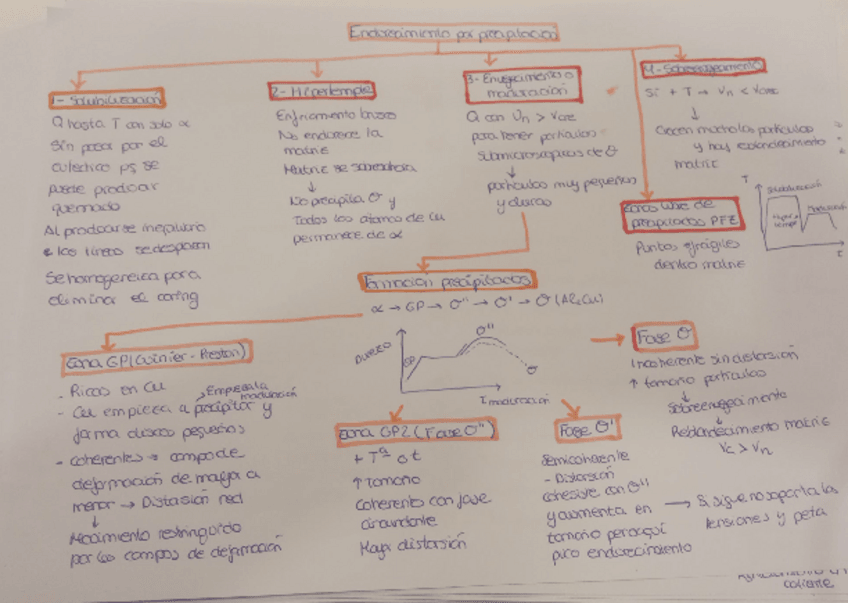 Endurecimiento por precipitación
1- Solubilización
Q hasta T con solo α
sin pasar por el
eutéctico ps se
puede producir
quemado
Al producirse in equilibrio
las líneas se desplazan
Se homogeneiza para
eliminar el coring
2- Hipertemple
Enfriamiento brusco
No endurece la
matriz
Matriz se sobresatura
↓
No precipita θ y
Todos los átomos de Cu
permanece de α
3- Envejecimiento o
maduración
Q con Vn > Vcrec
para tener partículas
submicroscópicas de θ
↓
partículas muy pequeñas
y duras
4- Sobreenvejecimiento
Si + T → Vn < Vcrec
↓
Crecen mucho las partículas
y hay ablandecimiento
matriz
Zonas libre de
precipitados PFZ
Puntos frágiles
dentro matriz
T
Solubilización
Hiper
temple
Maduración
t
Formación precipitados
α → GP → θ'' → θ' → θ (Al2Cu)
Dureza
GP
θ''
θ
T maduración
Zona GP (Guinier-Preston)
- Ricas en Cu
→ Empieza la
maduración
- Cu empieza a precipitar y
forma discos pequeños
- coherentes → campo de
deformación de mayor a
menor → Distorsión red
↓
Movimiento restringido
por los campos de deformación
Zona GP2 (Fase θ'')
+ Tª o t
↑ tamaño
Coherente con fase
circundante
Mayor distorsión
Fase θ'
Semicoherente
- Distorsión
cohesive con θ''
y aumenta en
tamaño pero aquí
pico endurecimiento
→ Si sigue no soporta las
tensiones y peta
Fase θ
Incoherente sin distorsión
↑ tamaño partículas
↓
Sobreenvejecimiento
↓
Reblandecimiento matriz
Vc > Vn
caliente